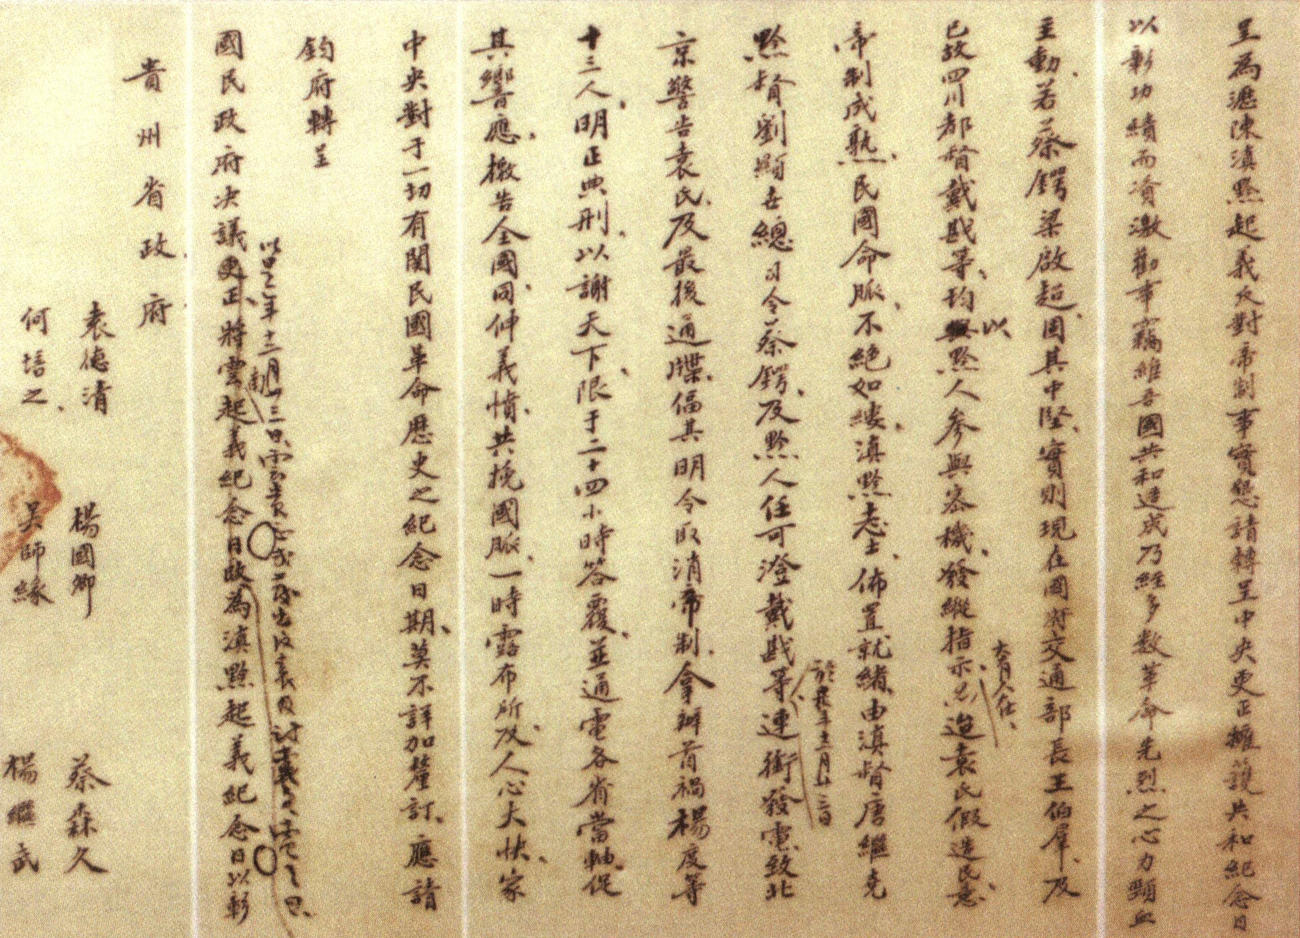 呈為瀝陳滇黔起義反對帝制事實懇請轉呈中央更正擁護共和紀念日
以彰功績而資激勸事竊維吾國共和造成乃經多數革命先烈之心力顥血
主動、若蔡鍔梁啟超、固其中堅、實則現在國府交通部長王伯羣、及
已故四川都督戴戡等、均以黔人參與密機、發縱指示、
大有人任、
迨袁氏假造民意、
帝制成熟、民國命脈、不絕如縷、滇黔志士、佈置就緒、由滇督唐繼堯
黔督劉顯世總司令蔡鍔、及黔人任可澄戴戡等、連銜發電致北
於民四年十二月廿三日
京警告袁氏、及最後通牒、偪其明令取消帝制、拿辦首禍楊度等
十三人、明正典刑、以謝天下、限于二十四小時答覆、並通電各省當軸、促
其響應、檄告全國、同伸義憤、共挽國脈、一時露布所及、人心大快、家
中央對于一切有關民國革命歷史之紀念日期、莫不詳加釐訂、應請
鈞府轉呈
國民政府決議更正、將雲起義紀念日改為滇黔起義紀念日以彰
貴州省政府
袁德清 楊國卿 蔡森久
何培之、 吳師緣 楊繼武